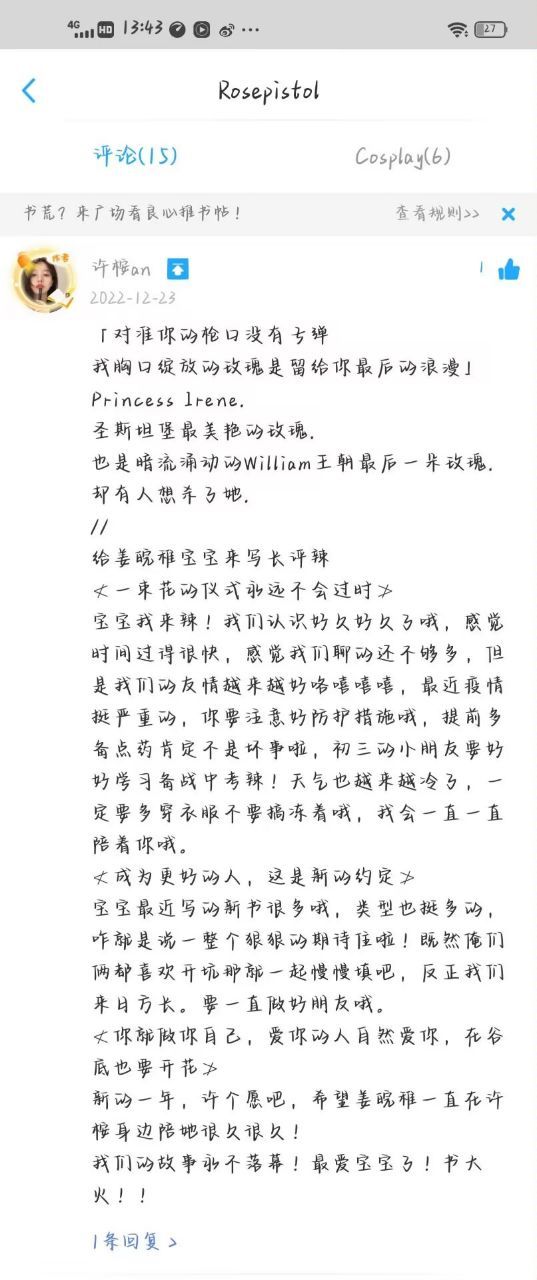 4G HD 13:43 ... 27
Rosepistol
评论(15) Cosplay(6)
书荒？来广场看良心推书帖！ 查看规则>>
作者
许桉an 1
2022-12-23
「对准你的枪口没有子弹
我胸口绽放的玫瑰是留给你最后的浪漫」
Princess Irene.
圣斯坦堡最美艳的玫瑰.
也是暗流涌动的William王朝最后一朵玫瑰.
却有人想杀了她.
//
给姜晚稚宝宝来写长评辣
≮一束花的仪式永远不会过时≯
宝宝我来辣！我们认识好久好久了哦，感觉
时间过得很快，感觉我们聊的还不够多，但
是我们的友情越来越好咯嘻嘻嘻，最近疫情
挺严重的，你要注意好防护措施哦，提前多
备点药肯定不是坏事啦，初三的小朋友要好
好学习备战中考辣！天气也越来越冷了，一
定要多穿衣服不要搞冻着哦，我会一直一直
陪着你哦。
≮成为更好的人，这是新的约定≯
宝宝最近写的新书很多哦，类型也挺多的，
咋就是说一整个狠狠的期待住啦！既然俺们
俩都喜欢开坑那就一起慢慢填吧，反正我们
来日方长。要一直做好朋友哦。
≮你就做你自己，爱你的人自然爱你，在谷
底也要开花≯
新的一年，许个愿吧，希望姜晚稚一直在许
桉身边陪她很久很久！
我们的故事永不落幕！最爱宝宝了！书大
火！！
1条回复 >